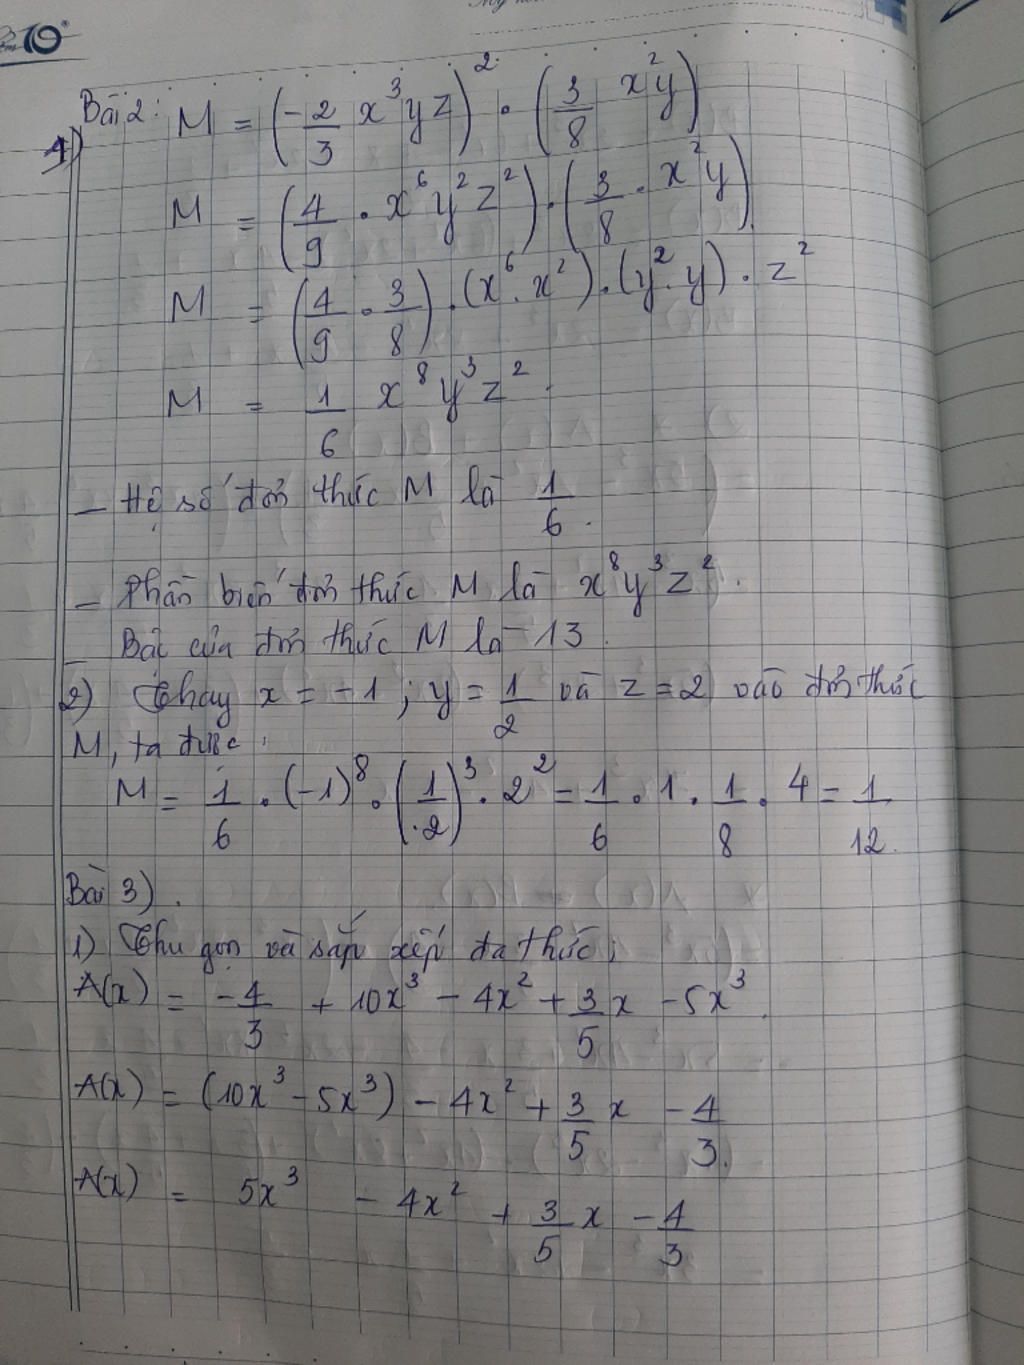 Bài 2: M = (-2/3 x³yz)² · (3/8 x²y)
1)
M = (4/9 · x⁶y²z²) · (3/8 · x²y)
M = (4/9 · 3/8) · (x⁶ · x²) · (y² · y) · z²
M = 1/6 x⁸y³z².
– Hệ số đơn thức M là 1/6.
– Phần biến đơn thức M là x⁸y³z².
– Bậc của đơn thức M là 13.
2) Thay x = -1; y = 1/2 và z = 2 vào đơn thức
M, ta được:
M = 1/6 · (-1)⁸ · (1/2)³ · 2² = 1/6 · 1 · 1/8 · 4 = 1/12.
Bài 3).
1) Thu gọn và sắp xếp đa thức;
A(x) = -4/3 + 10x³ - 4x² + 3/5 x - 5x³.
A(x) = (10x³ - 5x³) - 4x² + 3/5 x - 4/3.
A(x) = 5x³ - 4x² + 3/5 x - 4/3